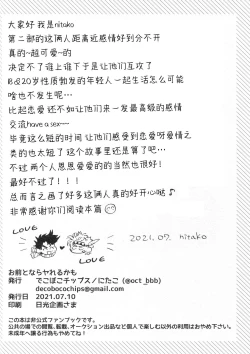 大家好 我是nitako
第二部的这俩人距离近感情好到分不开
真的~超可爱~的
决定不了谁上谁下于是让他们互攻了
18&20岁性质勃发的年轻人一起生活怎么可能
啥也不发生呢…
比起恋爱还不如让他们来一发最高级的感情
交流have a sex~~
毕竟这么短的时间 让他们感受到恋爱呀爱情之
类的也太短了 这个故事里还是算了吧…
不过两个人恩恩爱爱的的当然也很好!
最好不过了!!!
总而言之画了好多这俩人真的好开心哒♪
非常感谢你们阅读本篇
LOVE
LOVE
2021.07 nitako
お前とならヤれるかも
発行 でこぼこチップス/にたこ (@oct_bbb)
decobocochips@gmail.com
発行日 2021.07.10
印刷 日光企画さま
この本は非公式ファンブックです。
公共の場での閲覧、転載、オークション出品など個人で楽しむ以外の利用はおやめ下さい。
未成年へ譲る行為もやめてね!